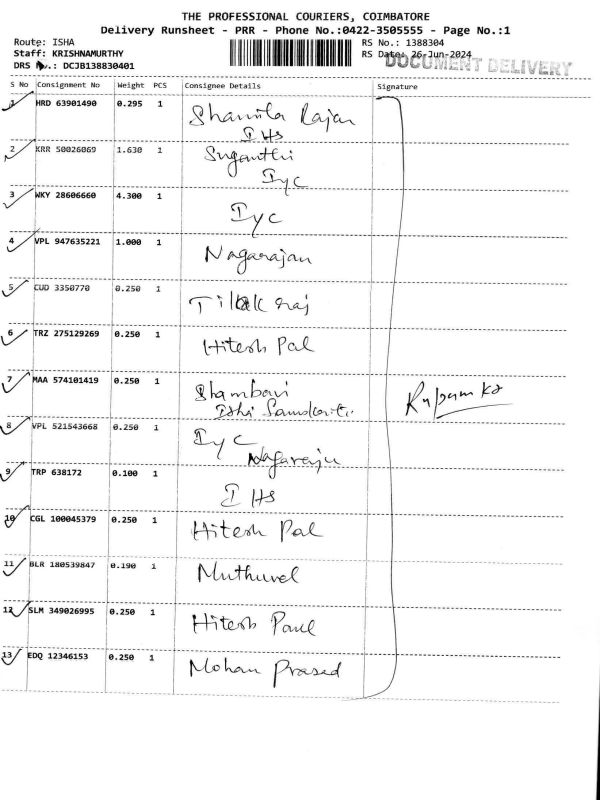 THE PROFESSIONAL COURIERS, COIMBATORE
Delivery Runsheet - PRR - Phone No.:0422-3505555 - Page No.:1
Route: ISHA
RS No.: 1388304
Staff: KRISHNAMURTHY
RS Date: 26-Jun-2024
DRS No.: DCJB138830401
DOCUMENT DELIVERY
S No Consignment No Weight PCS Consignee Details Signature
1 HRD 63901490 0.295 1 Shamila Rajan
IHS
2 KRR 50026069 1.630 1 Suganthi
Iyc
3 WKY 28606660 4.300 1 Iyc
4 VPL 947635221 1.000 1 Nagarajan
5 CUD 3350770 0.250 1 Tilak raj
6 TRZ 275129269 0.250 1 Hitesh Pal
7 MAA 574101419 0.250 1 Shambavi
Isha
8 VPL 521543668 0.250 1 Iyc
Nagaraju
9 TRP 638172 0.100 1 IHS
10 CGL 100045379 0.250 1 Hitesh Pal
11 BLR 180539847 0.190 1 Muthuvel
12 SLM 349026995 0.250 1 Hitesh Paul
13 EDQ 12346153 0.250 1 Mohan Prasad